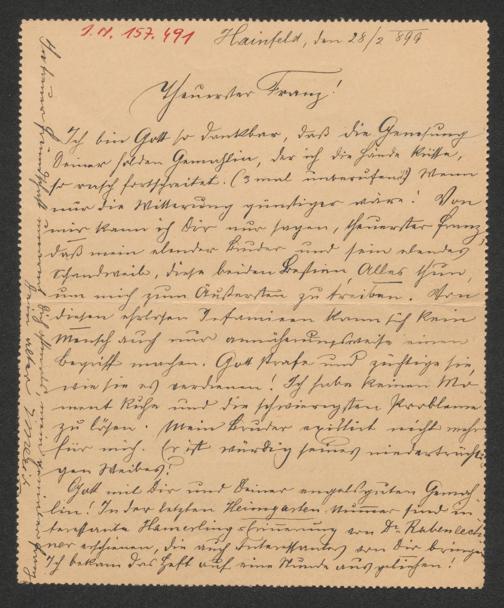 I.N. 157.491
Hainfeld, den 28/2 899
Theuerster Franz!
Ich bin Gott so dankbar, daß die Genesung
Deiner holden Gemahlin, der ich die Hände küsse,
so rasch fortschreitet. (3 mal unberufen!) Wenn
nur die Witterung günstiger wäre! Von
mir kann ich Dir nur sagen, theuerster Franz,
daß mein elender Bruder und sein elendes
Schandweib, diese beiden Bestien Alles thun,
um mich zum Äußersten zu treiben. Von
diesen ehrlosen Infamieen kann sich kein
Mensch auch nur annäherungsweise einen
Begriff machen. Gott strafe und züchtige sie,
wie sie es verdienen! Ich habe keinen Mo-
ment Ruhe und die schwierigsten Probleme
zu lösen. Mein Bruder existirt nicht mehr
für mich. Er ist würdig seines niederträchti-
gen Weibes!
Gott mit Dir und Deiner engelsguten Gemah-
lin! In der letzten Heimgarten-Nummer sind in-
teressante Hamerling-Erinnerung von Dr. Rabenlech-
ner erschienen, die auch Interessantes von Dir bringen.
Ich bekam das Heft auf eine Stunde ausgeliehen!
Dein alter